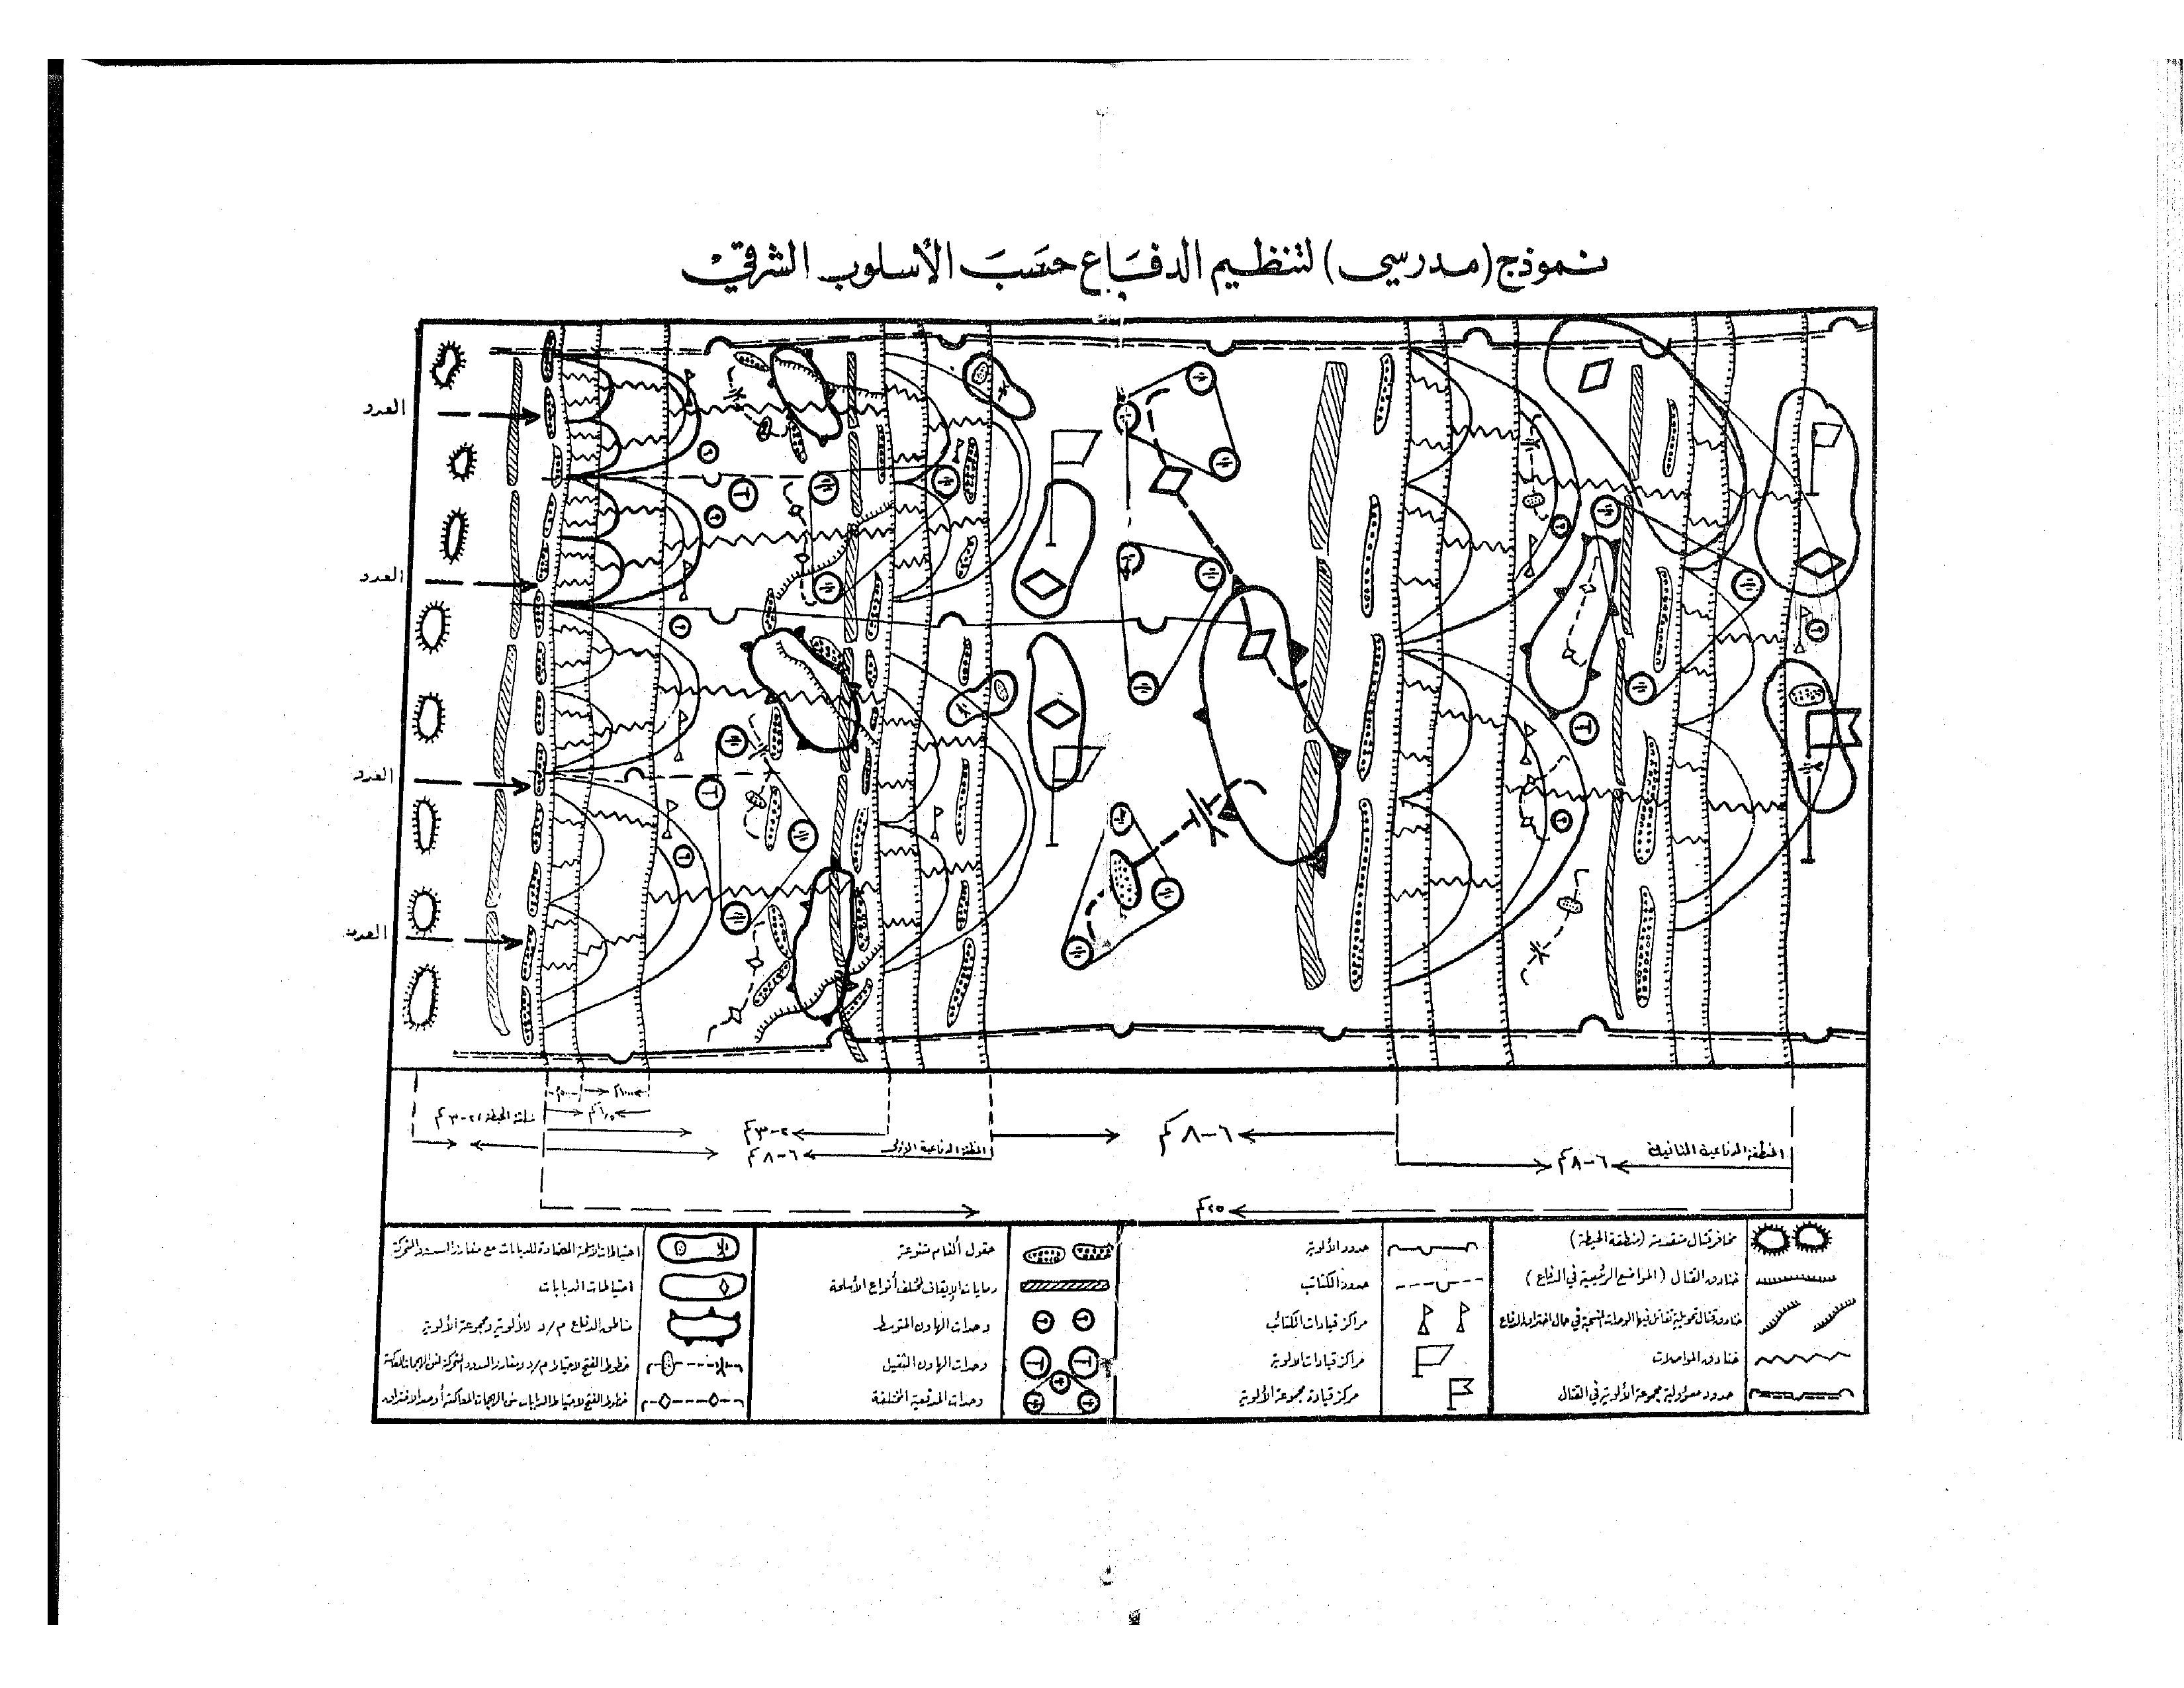 نموذج (مدرسي) لتنظيم الدفاع حسب الأسلوب الشرقي
العدو
العدو
العدو
العدو
٢-٣كم
٦-٨كم
المنطقة الدفاعية الأولى
٦-٨كم
٦-٨كم
المنطقة الدفاعية الثانية
٢٥كم
مخافر قتال متقدمة (منطقة الحيطة)
خنادق القتال (المواضع الرئيسية في الدفاع)
خنادق المواصلات
حدود مسؤولية مجموعة الألوية في القتال
حدود الألوية
حدود الكتائب
مراكز قيادات الكتائب
مراكز قيادات الألوية
مركز قيادة مجموعة الألوية
حقول ألغام متنوعة
رمايات الإيقاف لمختلف أنواع الأسلحة
وحدات الهاون المتوسط
وحدات الهاون الثقيل
وحدات المدفعية المختلفة
احتياطات الدبابات
مناطق الدفاع م/د للألوية ومجموعة الألوية